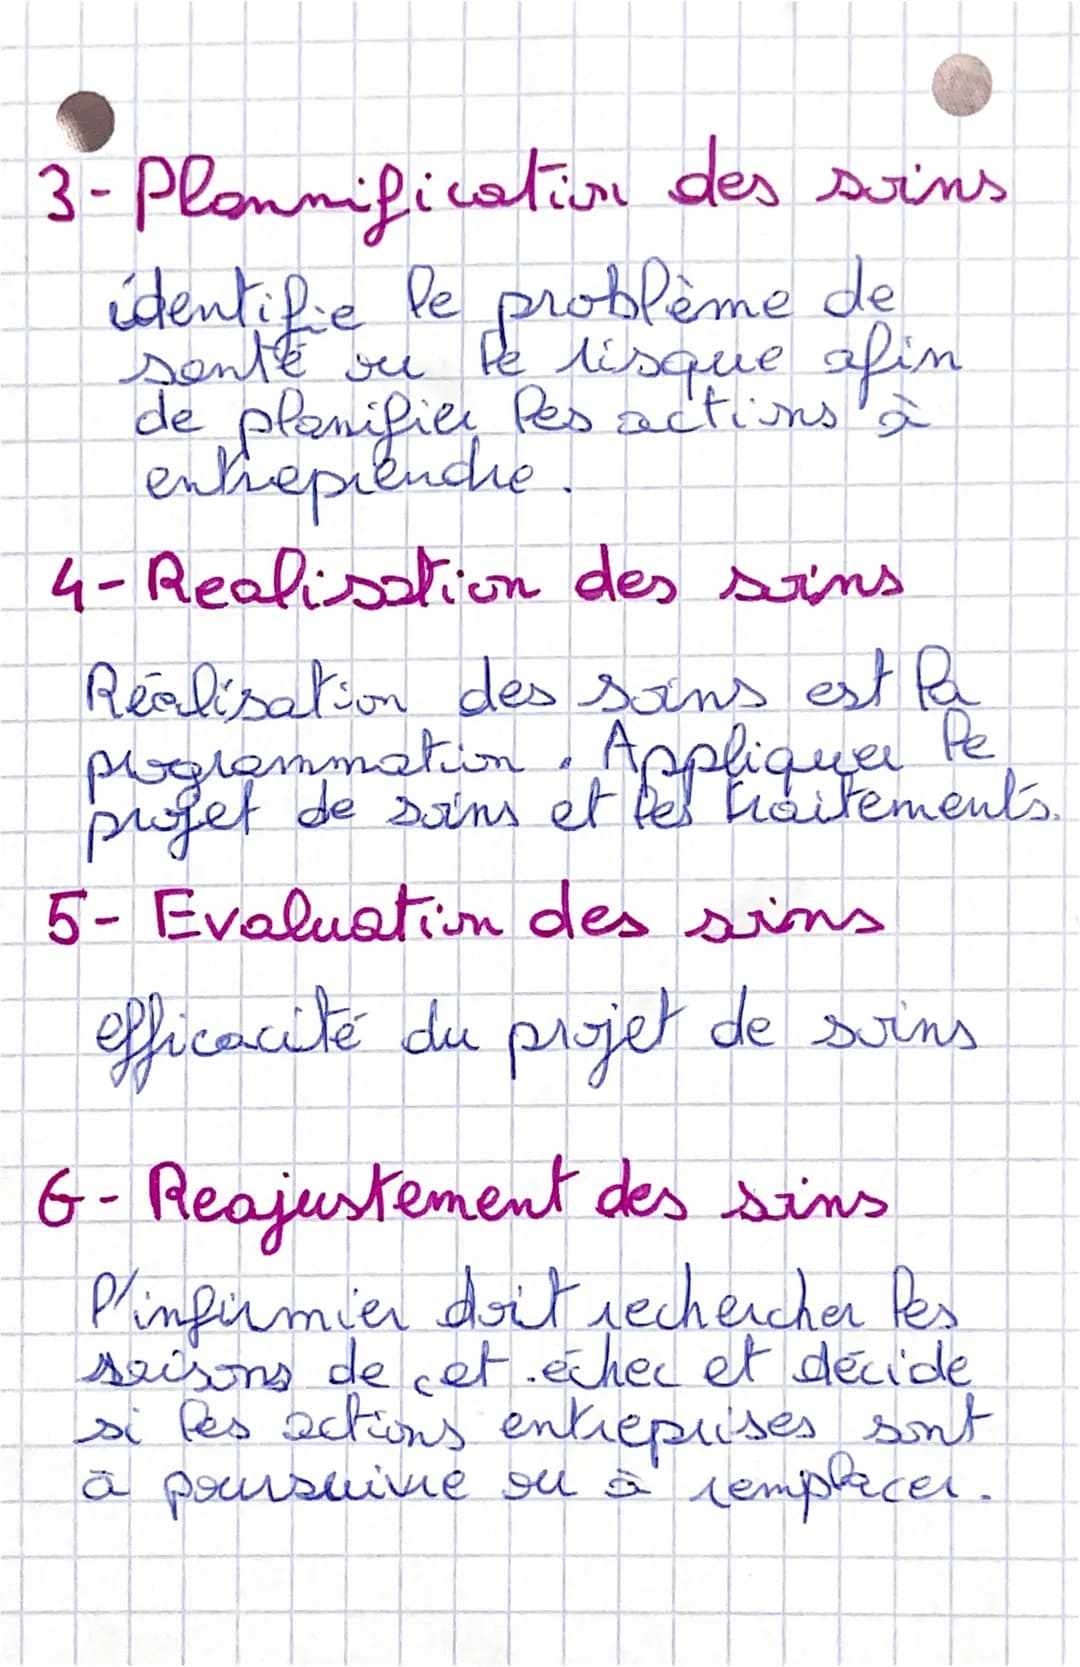 3- Plannification des soins
identifie le problème de
santé ou le risque afin
de planifier les actions à
entreprendre.
4- Realisation des soins
Réalisation des soins est la
programmation. Appliquer le
projet de soins et les traitements.
5- Evaluation des soins
efficacité du projet de soins
6- Reajustement des soins
l'infirmier doit rechercher les
raisons de cet échec et décide
si les actions entreprises sont
à poursuivre ou à remplacer.